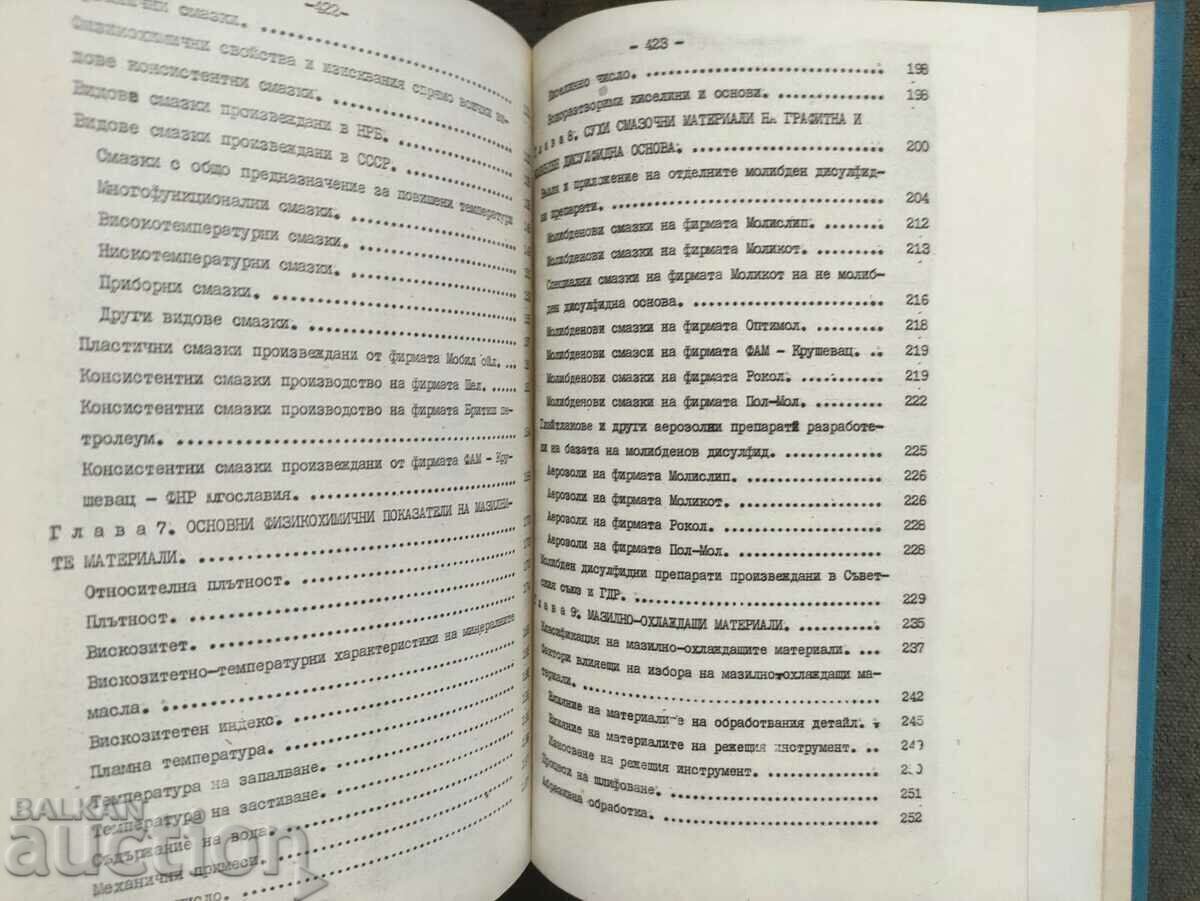 -422-
смазки.
Физикохимични свойства и изисквания спрямо всички ви-
дове консистентни смазки.
Видове смазки произвеждани в НРБ.
Видове смазки произвеждани в СССР.
Смазки с общо предназначение за повишени температури
Многофункционални смазки.
Високотемпературни смазки.
Нискотемпературни смазки.
Приборни смазки.
Други видове смазки.
Пластични смазки произвеждани от фирмата Мобил ойл.
Консистентни смазки производство на фирмата Шел.
Консистентни смазки производство на фирмата Бритиш пе-
тролеум.
Консистентни смазки произвеждани от фирмата ФАМ - Кру-
шевац - ФНР Югославия.
Глава 7. ОСНОВНИ ФИЗИКОХИМИЧНИ ПОКАЗАТЕЛИ НА МАЗИЛНИ-
ТЕ МАТЕРИАЛИ.
Относителна плътност.
Плътност.
Вискозитет.
Вискозитетно-температурни характеристики на минералните
масла.
Вискозитетен индекс.
Пламна температура.
Температура на запалване.
Температура на застиване.
Съдържание на вода.
Механични примеси.
число.
- 423 -
Киселинно число. 198
Водоразтворими киселини и основи. 198
Глава 8. СУХИ СМАЗОЧНИ МАТЕРИАЛИ НА ГРАФИТНА И
МОЛИБДЕН ДИСУЛФИДНА ОСНОВА. 200
Видове и приложение на отделните молибден дисулфид-
ни препарати. 204
Молибденови смазки на фирмата Молислип. 212
Молибденови смазки на фирмата Моликот. 213
Специални смазки на фирмата Моликот на не молиб-
ден дисулфидна основа. 216
Молибденови смазки на фирмата Оптимол. 218
Молибденови смазси на фирмата ФАМ - Крушевац. 219
Молибденови смазки на фирмата Рокол. 219
Молибденови смазки на фирмата Пол-Мол. 222
Глайтлакове и други аерозолни препарати разработе-
ни на базата на молибденов дисулфид. 225
Аерозоли на фирмата Молислип. 226
Аерозоли на фирмата Моликот. 226
Аерозоли на фирмата Рокол. 228
Аерозоли на фирмата Пол-Мол. 228
Молибден дисулфидни препарати произвеждани в Съвет-
ския съюз и ГДР. 229
Глава 9. МАЗИЛНО-ОХЛАЖДАЩИ МАТЕРИАЛИ. 235
Класификация на мазилно-охлаждащите материали. 237
Фактори влияещи на избора на мазилноохлаждащи ма-
териали. 242
Влияние на материалите на обработвания детайл. 245
Влияние на материалите на режещия инструмент. 249
Износване на режещия инструмент.
Процеси на шлифоване. 251
Абразивна обработка. 252
BALKAN
auction